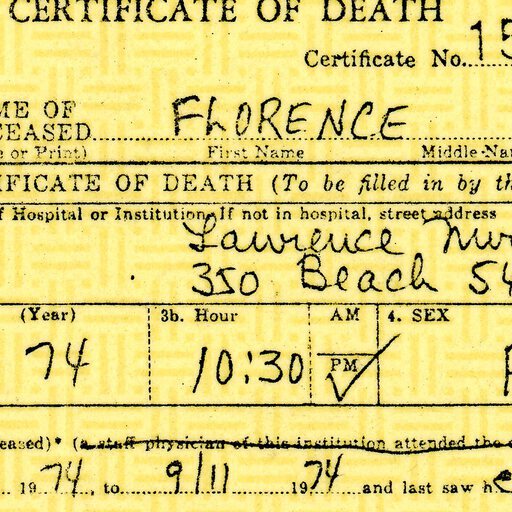 CERTIFICATE OF DEATH
Certificate No. 15
ME OF
CEASED FLORENCE
e or Print) First Name Middle Na
IFICATE OF DEATH (To be filled in by th
f Hospital or Institution—If not in hospital, street address
Lawrence Nur
350 Beach 54
(Year) 3b. Hour AM 4. SEX
74 10:30 PM ✓
eased)* (a staff physician of this institution attended the
19 74, to 9/11 1974 and last saw h